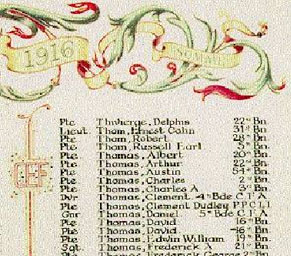 1916
Pte Thivierge, Delphis 22nd Bn.
Lieut. Thom, Ernest Colin 31st Bn.
Pte Thom, Robert 28th Bn.
Pte Thom, Russell Earl 5th Bn.
Pte Thomas, Albert 20th Bn.
Pte Thomas, Arthur 22nd Bn.
Pte Thomas, Austin 54th Bn.
Pte Thomas, Charles 2nd Bn.
Pte Thomas, Charles A 3rd Bn.
Dvr Thomas, Clement 4th Bde C F A
Pte Thomas, Clement Dudley P P C L I
Gnr Thomas, Daniel 5th Bde C F A
Pte Thomas, David 16th Bn.
Pte Thomas, David 46th Bn.
Pte Thomas, Edwin William 19th Bn.
Sgt Thomas, Frederick A 21st Bn.
Pte Thomas, Frederick George 2nd Bn.